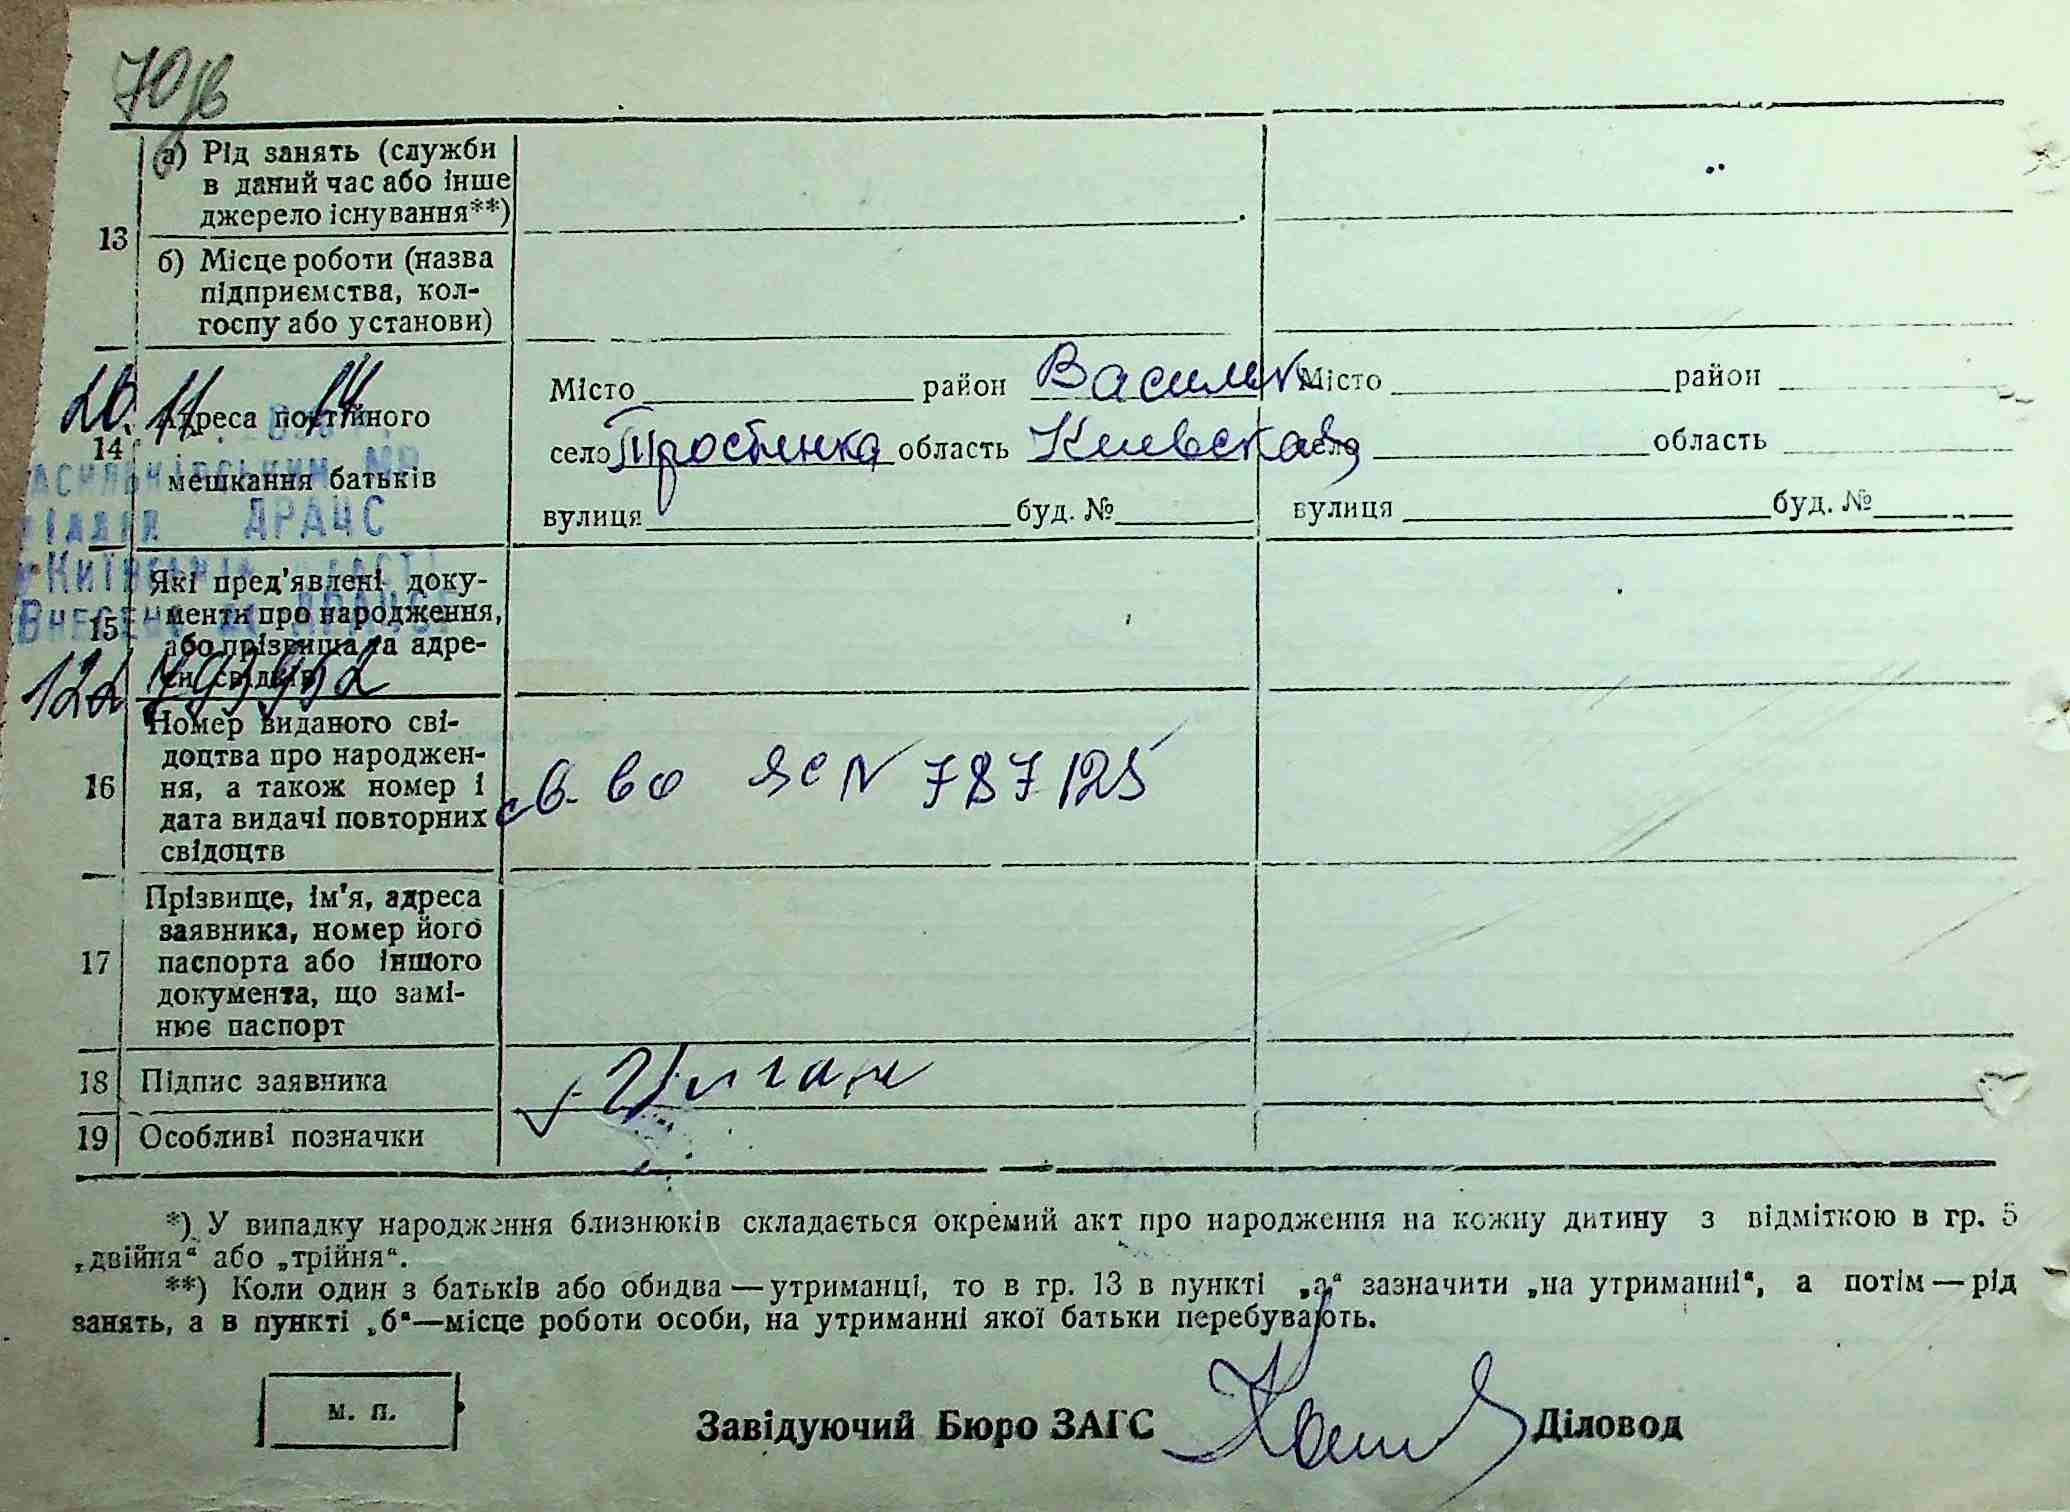 70зв
13
а) Рід занять (служби
в даний час або інше
джерело існування**)
б) Місце роботи (назва
підприємства, кол-
госпу або установи)
14
Адреса постійного
мешкання батьків
Місто район Васильк
село Тростинка область Киевская
вулиця буд. №
Місто район
село область
вулиця буд. №
20. 11. 14
ДРАЦС
15
Які пред'явлені доку-
менти про народження,
або прізвища та адре-
си свідків
16
Номер виданого сві-
доцтва про народжен-
ня, а також номер і
дата видачі повторних
свідоцтв
св. во ЯС N 787125
17
Прізвище, ім'я, адреса
заявника, номер його
паспорта або іншого
документа, що замі-
нює паспорт
18 Підпис заявника
Циган
19 Особливі позначки
*) У випадку народження близнюків складається окремий акт про народження на кожну дитину з відміткою в гр. 5
„двійня“ або „трійня“.
**) Коли один з батьків або обидва — утриманці, то в гр. 13 в пункті „а“ зазначити „на утриманні“, а потім — рід
занять, а в пункті „б“—місце роботи особи, на утриманні якої батьки перебувають.
м. п.
Завідуючий Бюро ЗАГС Діловод